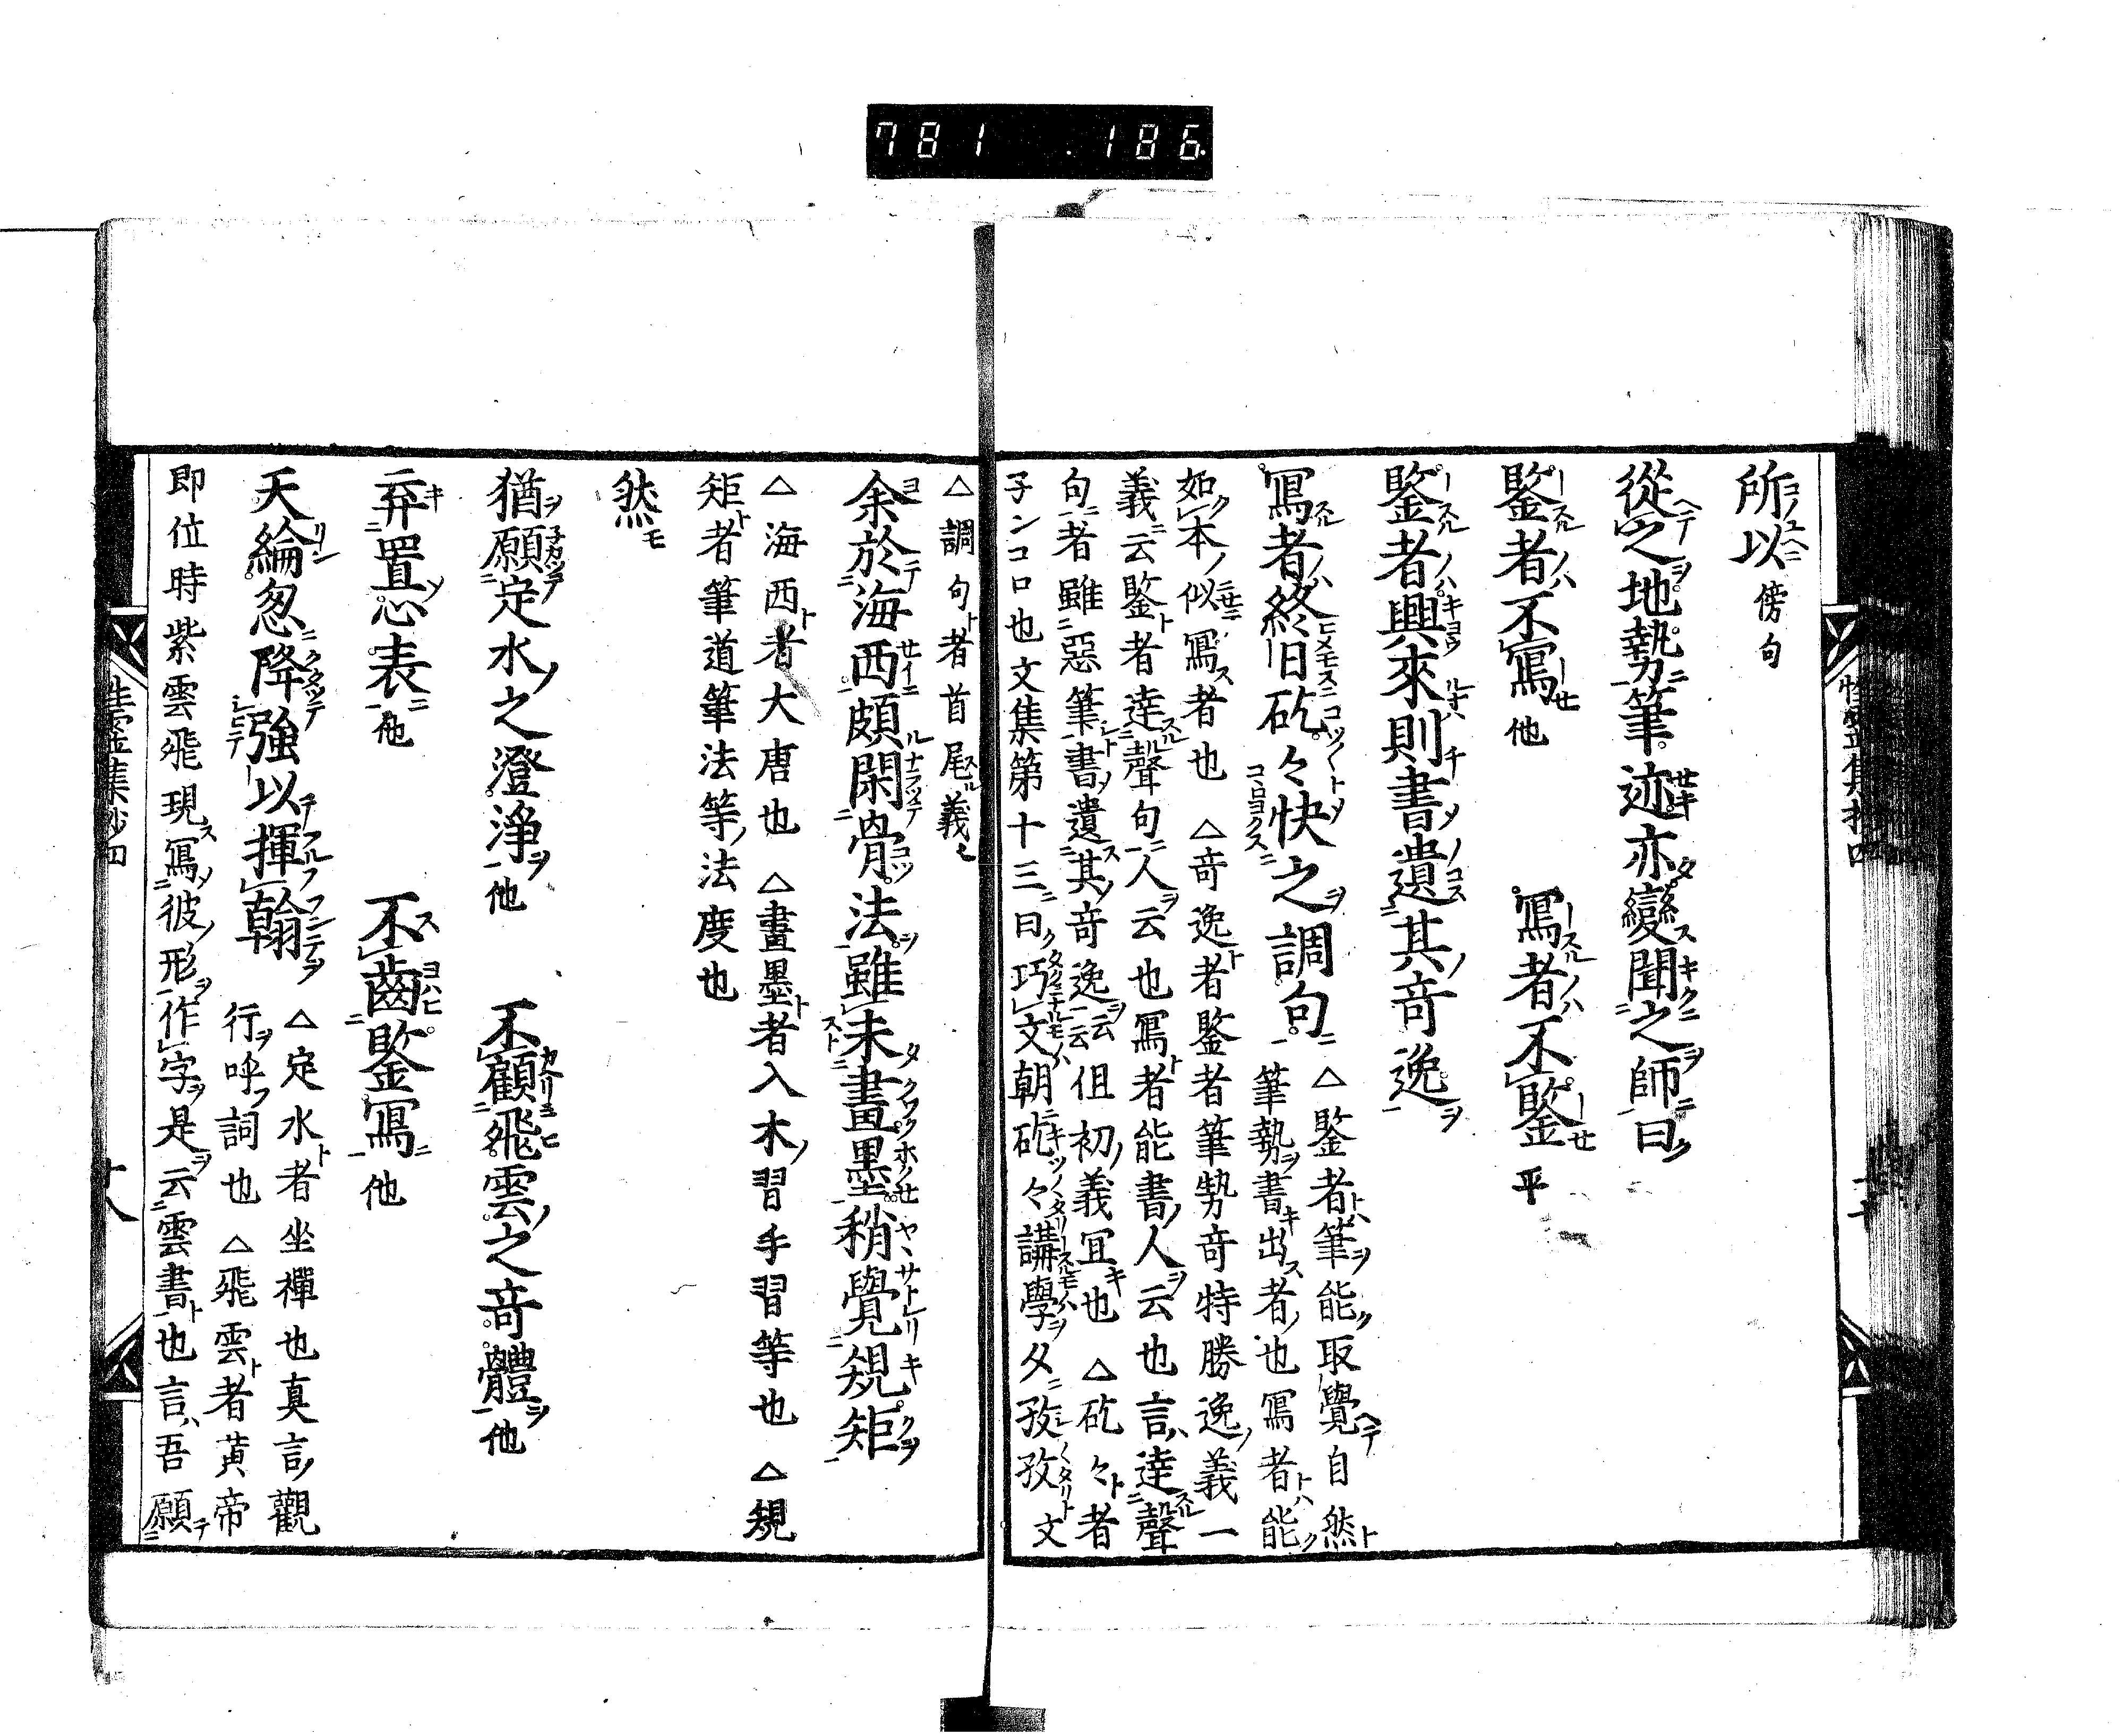 781 .186.
所以 傍句
從之地勢筆迹亦變聞之師曰
鑒者不寫 他 寫者不鑒 平
鑒者興來則書遺其奇逸
寫者終日矻々快之調句 △鑒者筆能取覺自然
筆勢書出者也寫者能
如本似寫者也 △奇逸者鑒者筆勢奇特勝逸義一
義云鑒者達聲句人云也寫者能書人云也言達聲
句者雖惡筆書遺其奇逸云云但初義冝也 △矻々者
子ンコロ也文集第十三曰巧文朝矻々講學夕孜孜文
△調句者首尾義也
余於海西頗閑骨法雖未畫墨稍覺規矩
△海西者大唐也 △畫墨者入木習手習等也 △規
矩者筆道筆法等法度也
然
猶願定水之澄淨 他 不顧飛雲之奇體 他
弃置心表 他 不齒鑒寫 他
天綸忽降強以揮翰 △定水者坐禪也真言觀
行呼詞也 △飛雲者黄帝
即位時紫雲飛現寫彼形作字是云雲書也言吾願
性靈集抄四